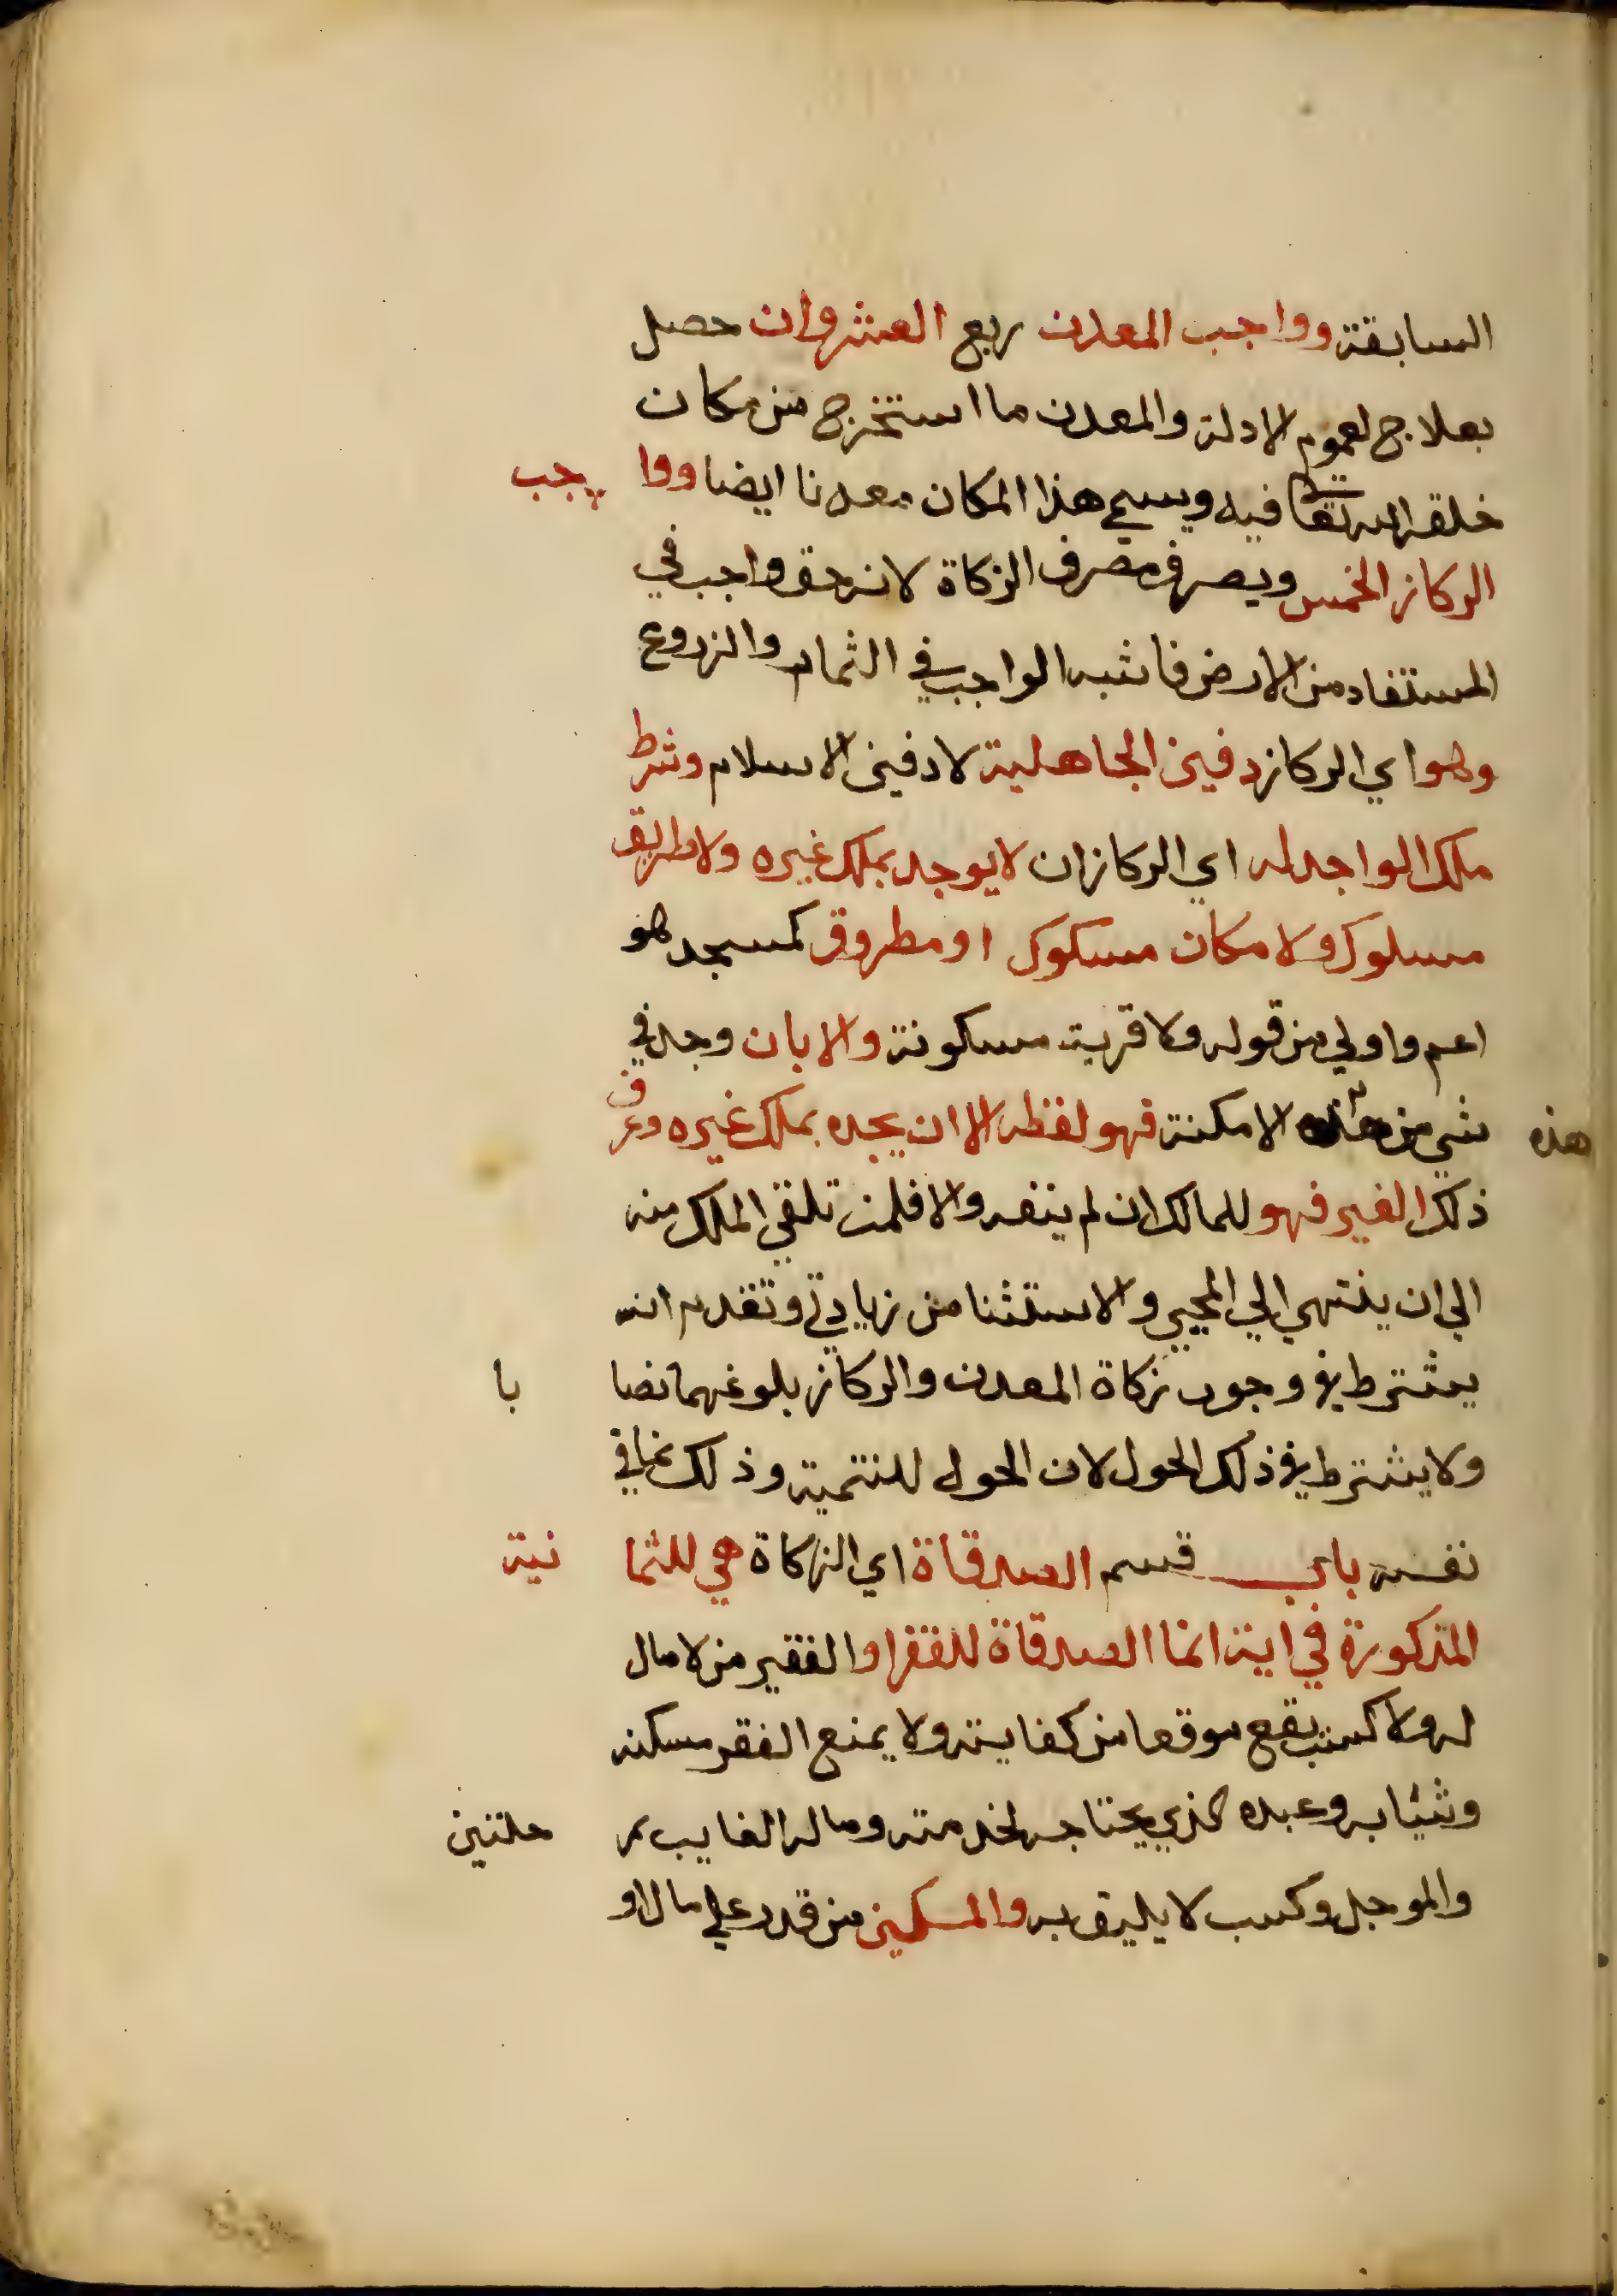 السابقة وواجب المعدن ربع العشر وان حصل
بعلاج لعموم الادلة والمعدن ما استخرج من مكان
خلقه الله تعالى فيه ويسمي هذا المكان معدنا ايضا وواجب
الركاز الخمس ويصرف مصرف الزكاة لانه حق واجب في
المستفاد من الارض فاشبه الواجب في الثمار والزروع
وهو اي الركاز دفين الجاهلية لا دفين الاسلام وشرط
ملك الواجد له اي الركاز ان لا يوجد بملك غيره ولا طريق
مسلوك ولا مكان مسكوك او مطروق كمسجد هو
اعم واولي من قوله ولا قرية مسكونة والا بان وجد في
شي من هذه الامكنة فهو لقطه الا ان يجده بملك غيره وعرف
ذلك الغير فهو للمالك ان لم ينفه والا فلمن تلقي الملك منه
الي ان ينتهي الي المحيي والاستثنا من زيادتي وتقدم انه
يشترط في وجوب زكاة المعدن والركاز بلوغهما نصابا
ولا يشترط في ذلك الحول لان الحول للتنمية وذلك نما في
نفسه باب قسم الصدقاة اي الزكاة هي للثمانية
المذكورة في اية انما الصدقاة للفقرا والفقير من لا مال
له ولا كسب يقع موقعا من كفايته ولا يمنع الفقر مسكنه
وثيابه وعبده الذي يحتاجه لخدمته وماله الغايب بمرحلتين
والموجل وكسب لا يليق به والمسكين من قدر علي مال او